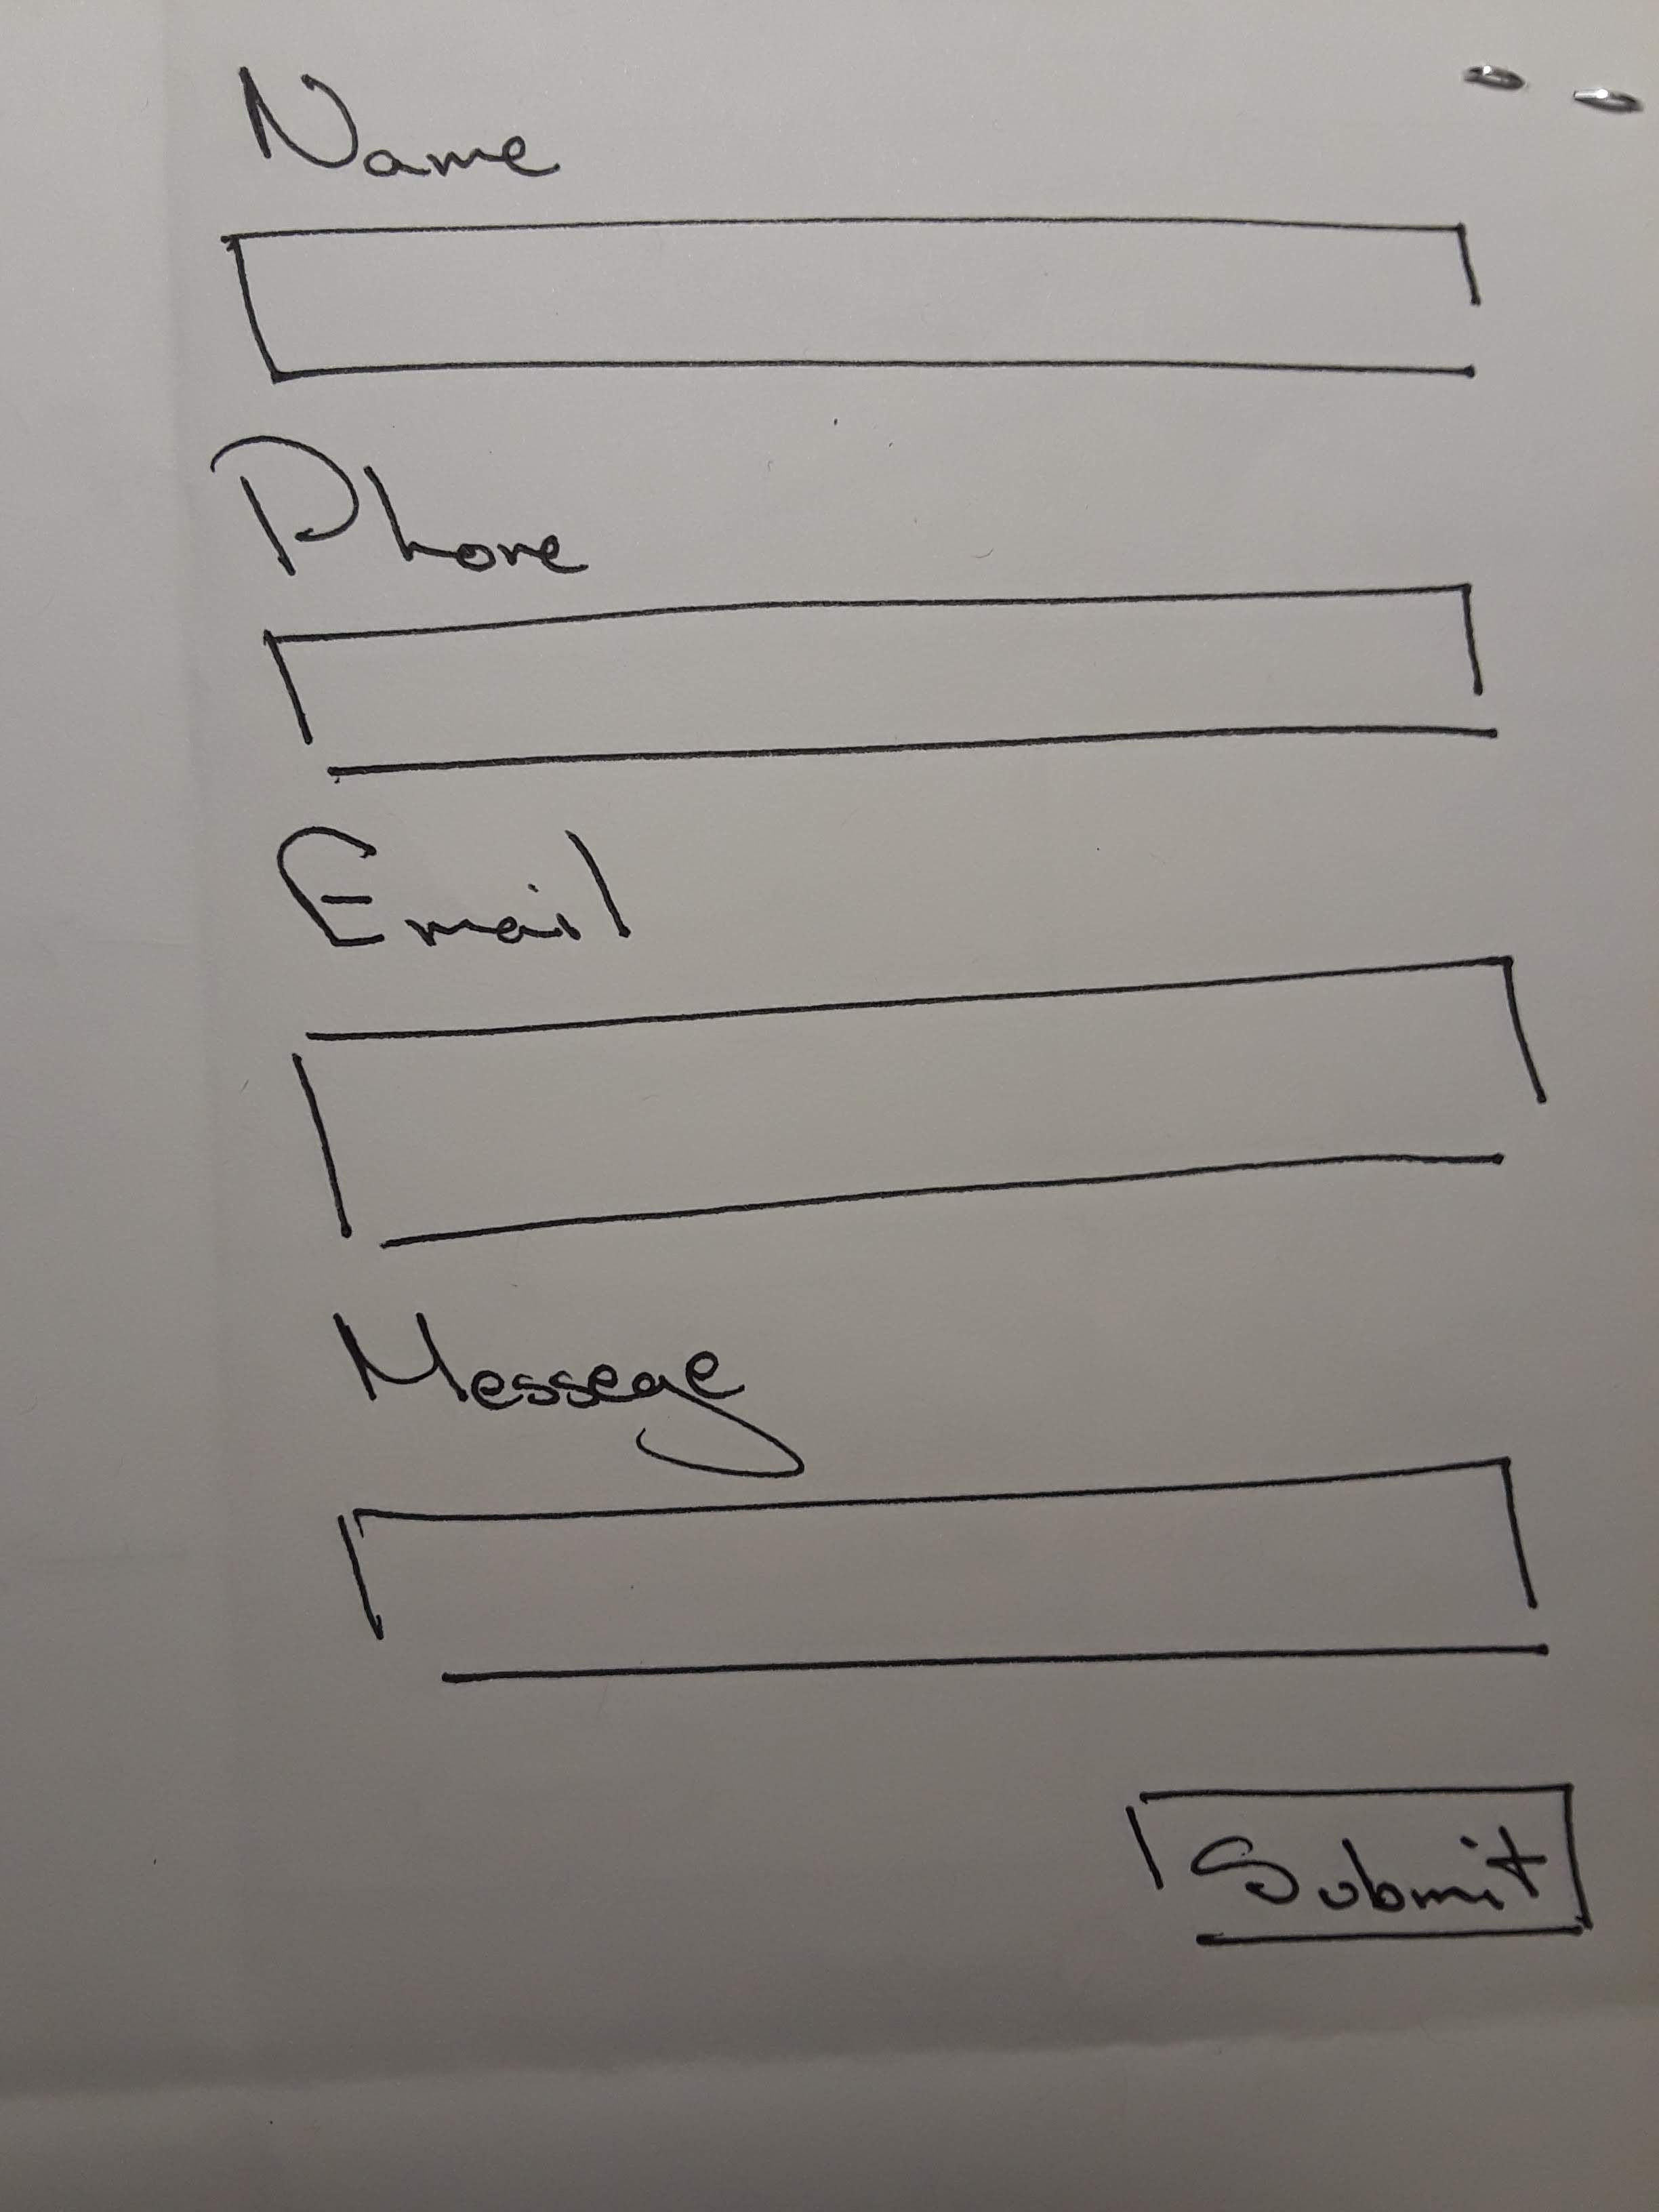 Name
Phone
Email
Messege
Submit